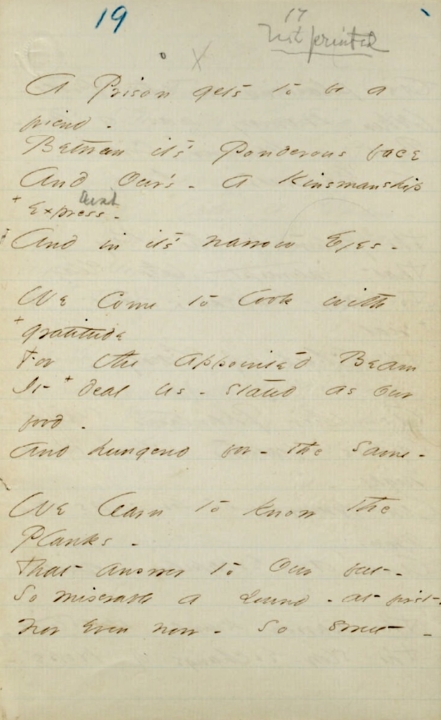 19
17
Not printed
x
A Prison gets to be a
friend -
Between it's Ponderous face
And Our's - a Kinsmanship
+ Express -
exist
And in it's narrow Eyes -
We Come to look with
+ gratitude
For the appointed Beam
It + deal us - stated as Our
food -
And hungered for - the same -
We learn to know the
Planks -
That answer to Our feet -
So miserable a sound - at first -
Nor Even now - So Sweet -